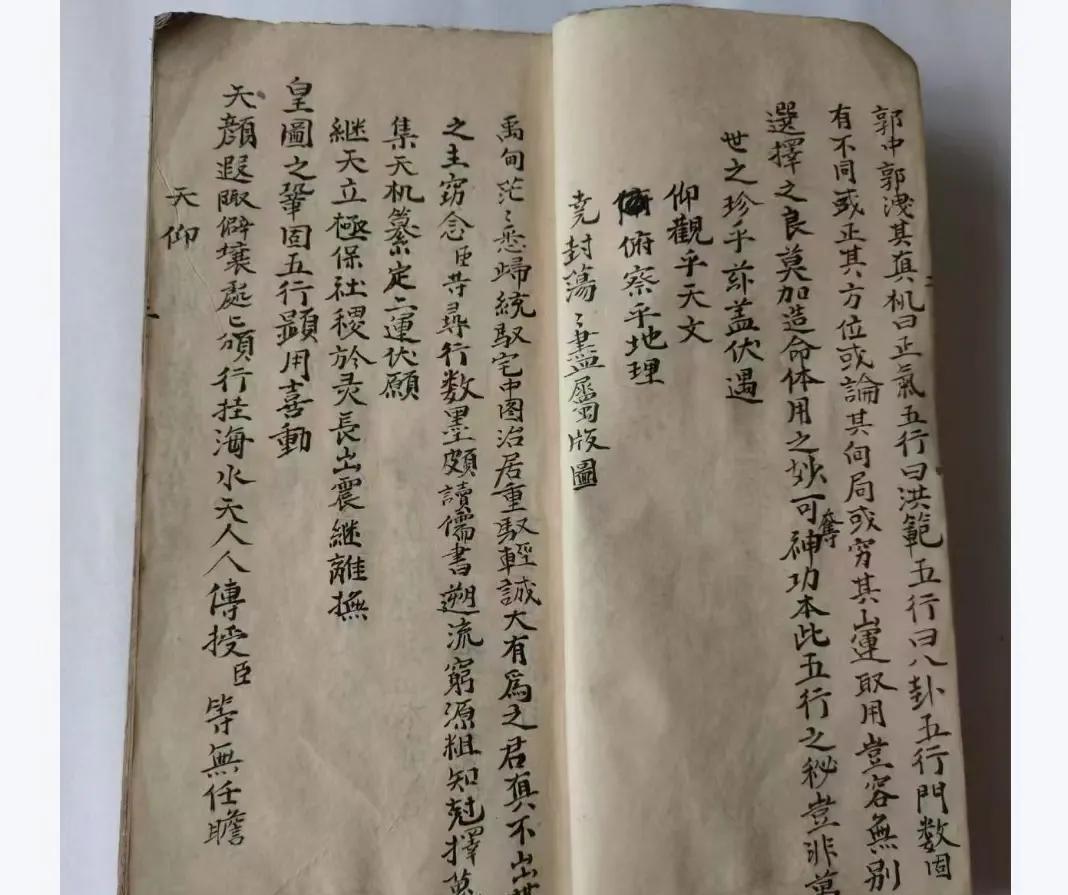 郭中郭洩其真机曰正氣五行曰洪範五行曰八卦五行門數固
有不同或正其方位或論其向局或穷其山運取用豈容無别
選擇之良莫加造命体用之妙可奪神功本此五行之秘豈非萬
世之珍乎兹盖伏遇
仰觀乎天文
俯察乎地理
尭封蕩〻盡屬版圖
禹甸茫〻悉歸統馭宅中图治居重馭輕誠大有為之君真不出世
之主窃念臣等尋行数墨頗讀儒書遡流窮源粗知尅擇
集天机纂定二運伏願
継天立極保社稷於灵長出震継離撫
皇圖之鞏固五行顯用喜動
天顔遐陬僻壤處〻頒行挂海水天人人傳授臣等無任瞻
天仰